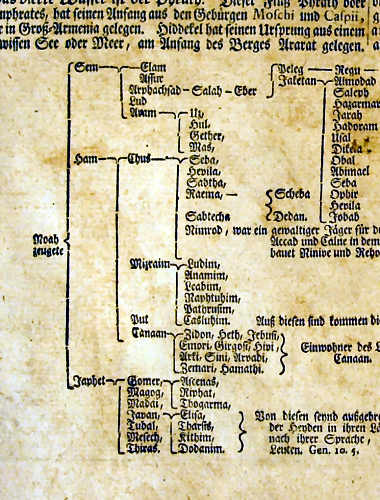 phrates, hat seinen Anfang aus den Gebürgen Moschi und Caspii,
in Groß-Armenia gelegen. Hiddekel hat seinen Ursprung aus einem
wissen See oder Meer, am Anfang des Berges Ararat gelegen.
Noah zeugete
Sem
Elam
Assur
Arphachsad - Salah - Eber
Lud
Aram
Uz,
Hul,
Gether,
Mas,
Peleg - Regu
Jaketan
Almodad
Saleph
Hazarmav
Jarah
Hadoram
Usal
Dikela
Obal
Abimael
Seba
Ophir
Hevila
Jobab
Ham
Chus
Seba,
Hevila,
Sabtha,
Raema,
Scheba
Dedan.
Sabtecha
Nimrod, war ein gewaltiger Jäger für
Accad und Calne in dem
bauet Ninive und
Mizraim
Ludim,
Anamim,
Leabim,
Naphtuhim,
Pathrusim,
Casluhim.
Auß diesen sind kommen die
Put
Canaan
Zidon, Heth, Jebusi,
Emori, Girgosi, Hivi,
Arki, Sini, Arvadi,
Zemari, Hamathi.
Einwohner des
Canaan.
Japhet
Gomer
Ascenas,
Riphat,
Thogarma,
Magog,
Madai,
Javan
Elisa,
Tharsis,
Kithim,
Dodanim.
Tubal,
Mesech,
Thiras.
Von diesen seynd außgebre
der Heyden in ihren
nach ihrer Sprache,
Leuten. Gen. 10. 5.